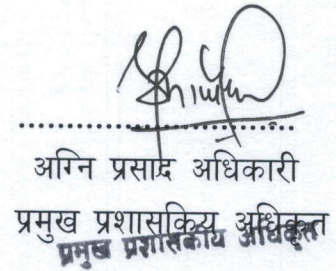 ........................................
अग्नि प्रसाद अधिकारी
प्रमुख प्रशासकिय अधिकृत
प्रमुख प्रशासकीय अधिकृत